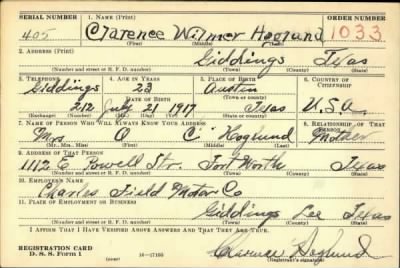 SERIAL NUMBER 1. NAME (Print) ORDER NUMBER
405 Clarence Wilmer Hoglund 1033
(First) (Middle) (Last)
2. ADDRESS (Print)
Giddings Texas
(Number and street or R. F. D. number) (Town) (County) (State)
3. TELEPHONE 4. AGE IN YEARS 5. PLACE OF BIRTH 6. COUNTRY OF CITIZENSHIP
Giddings 23 Austin
DATE OF BIRTH (Town or county)
212 July 21 1917 Texas U.S.A.
(Exchange) (Number) (Mo.) (Day) (Yr.) (State or country)
7. NAME OF PERSON WHO WILL ALWAYS KNOW YOUR ADDRESS 8. RELATIONSHIP OF THAT PERSON
Mrs O C Hoglund Mother
(Mr., Mrs., Miss) (First) (Middle) (Last)
9. ADDRESS OF THAT PERSON
1112 E. Powell Str. Fort Worth Texas
(Number and street or R. F. D. number) (Town) (County) (State)
10. EMPLOYER'S NAME
Charles Field Motor Co
11. PLACE OF EMPLOYMENT OR BUSINESS
Giddings Lee Texas
(Number and street or R. F. D. number) (Town) (County) (State)
I AFFIRM THAT I HAVE VERIFIED ABOVE ANSWERS AND THAT THEY ARE TRUE.
REGISTRATION CARD
D. S. S. Form 1 (over) 16-17105 Clarence Hoglund
(Registrant's signature)